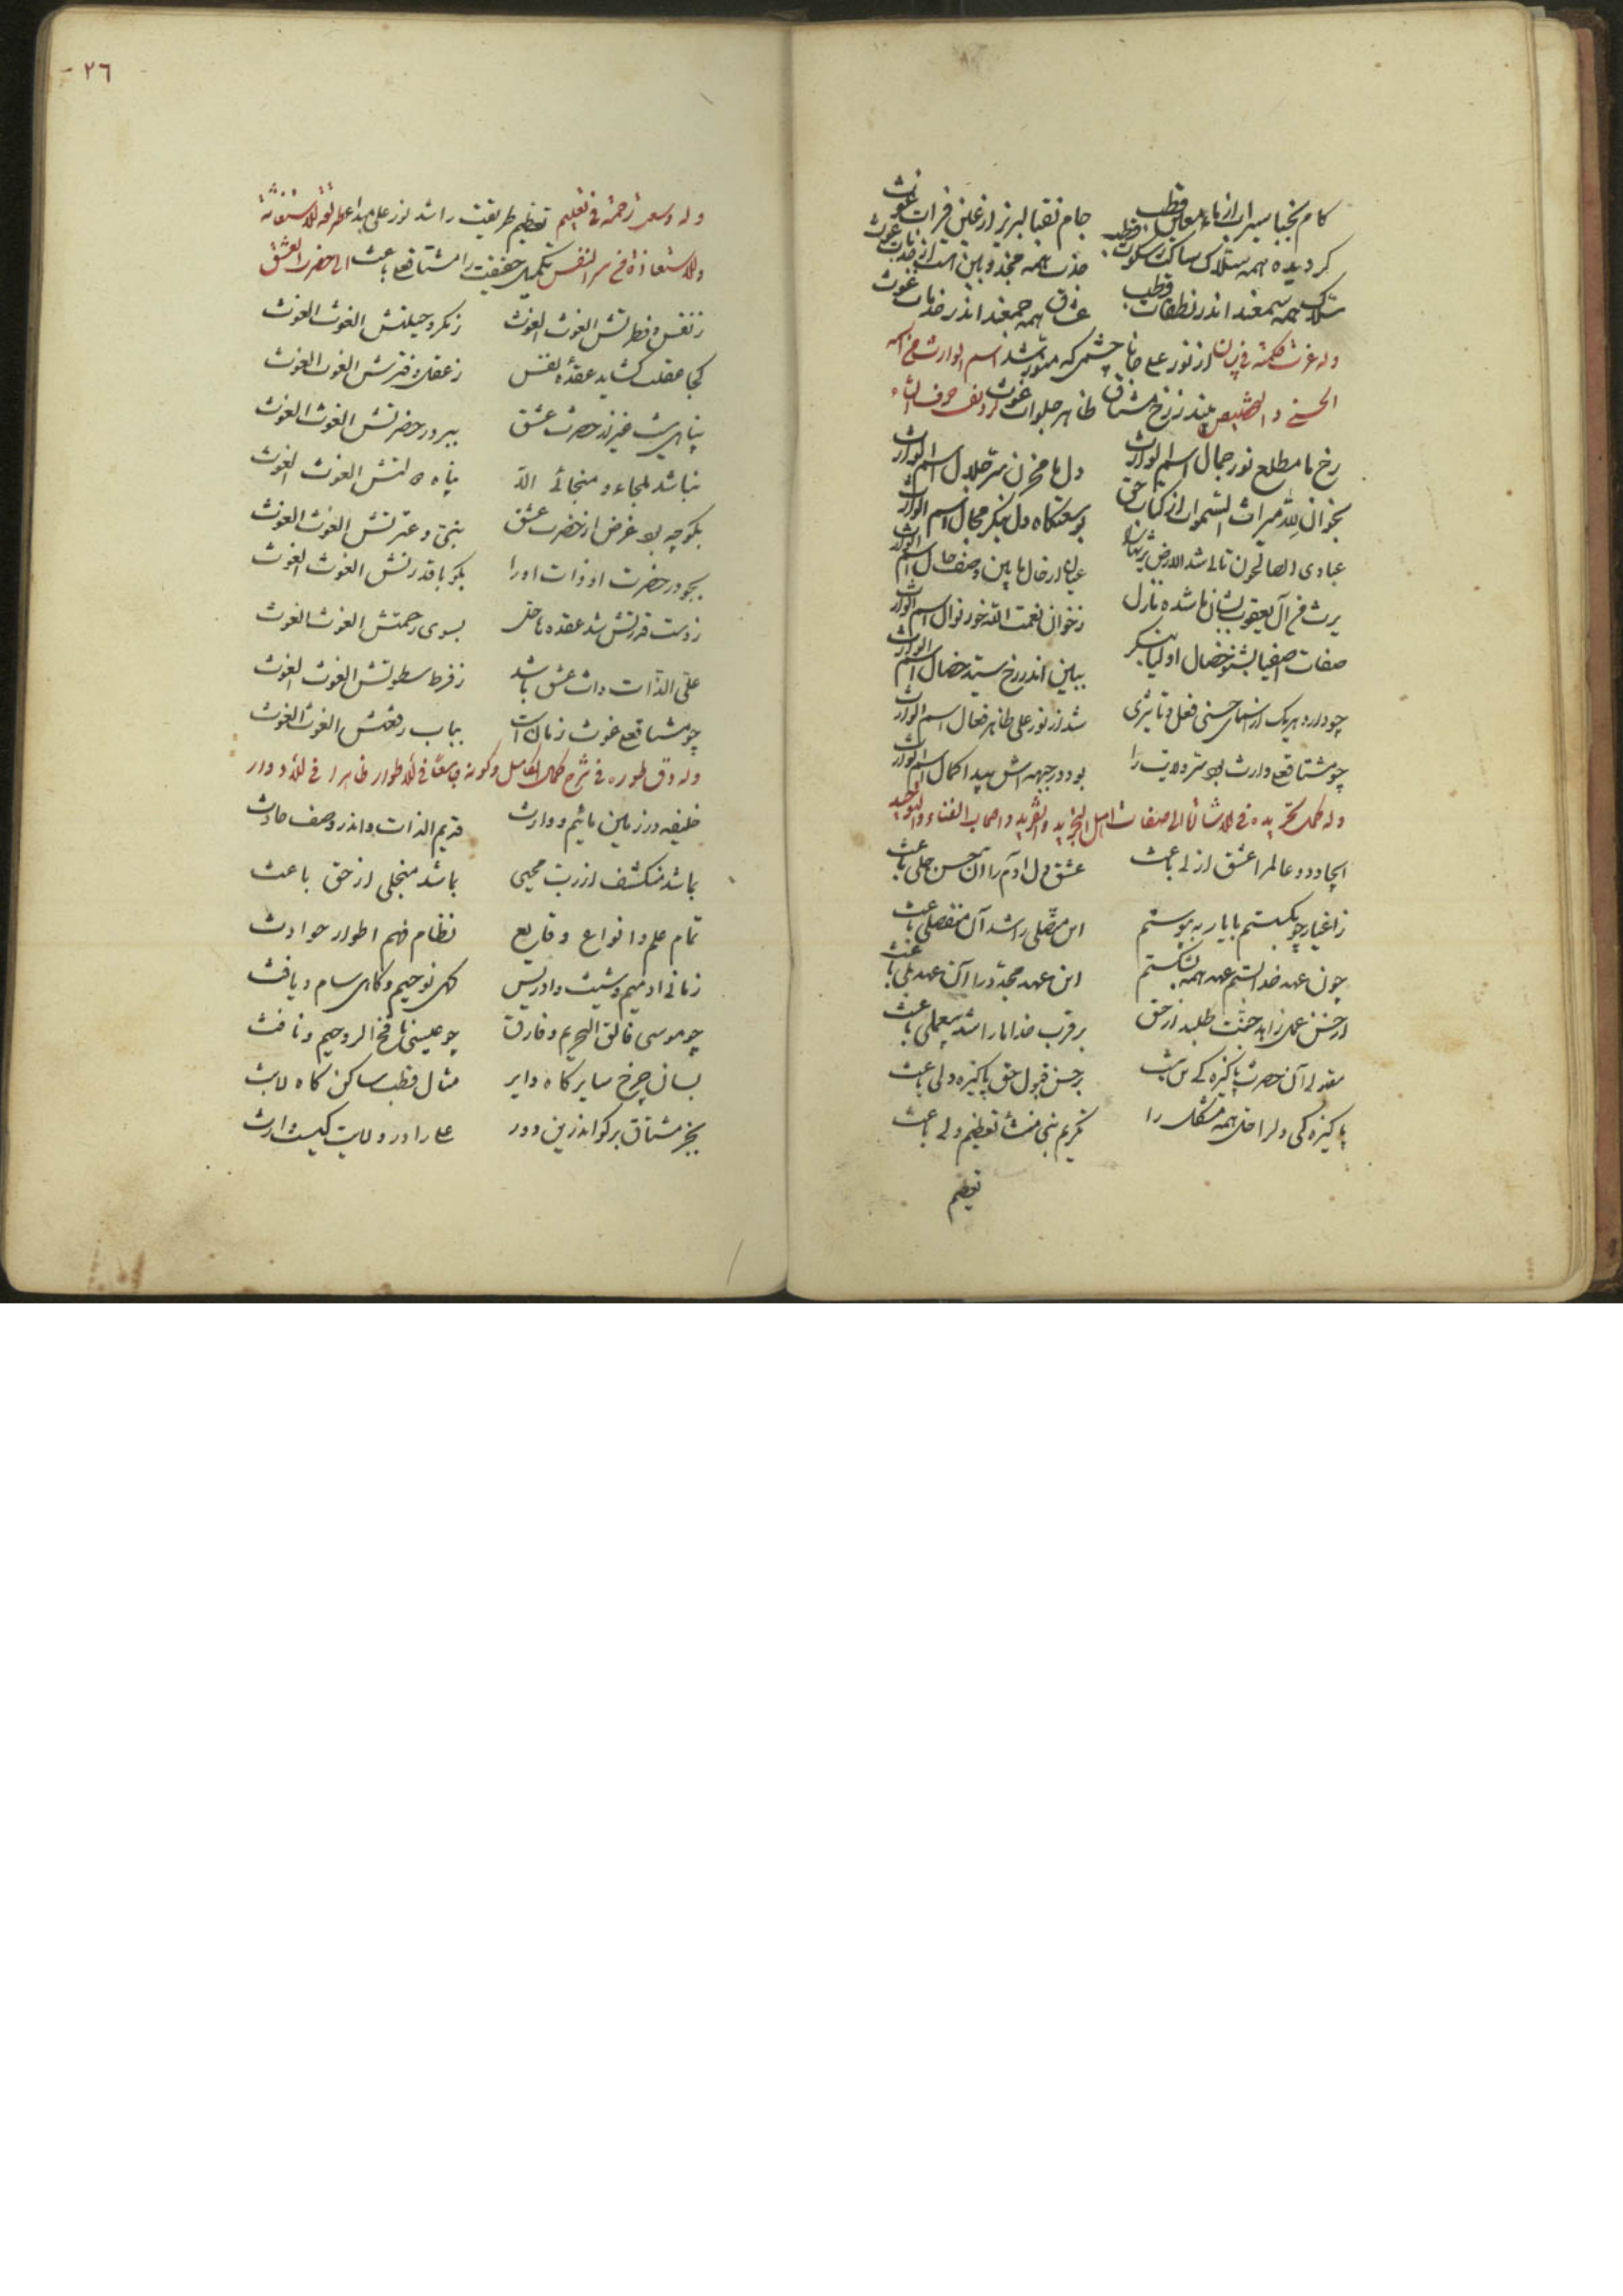 کام نجبا سیراب از ماء معاین قطب جام نقبا لبریز از عین فرات غوث
کردیده همه سلاک ساکت ز سکوت قطب جذب همه مجذوبین است از جذبات غوث
سلاک همه سمعند اندر نطقات قطب عشاق همه جمعند اندر خدمات غوث
وله عزت حکمته از نور علی جانا چشمی که منور شد اسم الوارث من اسمه
الحسنی بیند ز رخ مشتاق ظاهر جلوات غوث
رخ ما مطلع نور جمال اسم الوارث دل ما مخزن سر جلال اسم الوارث
بخوان لله میراث السموات از کتاب حق بوسعتکاه دل بنکر مجال اسم الوارث
عبادی الصالحون عیان از حال ما بین وصف حال اسم الوارث
یرث من آل یعقوب بشان ما شده نازل ز خوان نعمت الله خور نوال اسم الوارث
صفات اصفیا بشنو خصال اولیا بنکر ببین اندر رخ سید خصال اسم الوارث
چو دارد هریک از اسمای حسنی فعل و تاثیری شد از نور علی ظاهر فعال اسم الوارث
چو مشتاقعلی وارث بود سر ولایت را بود در جبهه‌اش پیدا کمال اسم الوارث
وله فی الاشارة الی صفات اهل التجرید والتفرید واصحاب الفناء والتوحید
ایجاد دو عالم را عشق ازلی باعث عشق دل آدم را آن حسن جلی باعث
ز اغیار چو بکسستم با یار بپیوستم این متصلی را شد آن منفصلی باعث
چون عهد خدا بستم عهد همه بشکستم این عهد مجدد را آن عهد بلی باعث
از حسن عمل زاهد جنت طلبد از حق بر قرب خدا ما را شد بیعملی باعث
مقبولی آن حضرت پاکیزه بر حسن قبول حق پاکیزه دلی باعث
پاکیزه کی دل را حل همه مشکل را تکریم نبی منشا تعظیم ولی باعث
تعظیم
٢٦
وله وسعت رحمته فی تعلیم تعظیم طریقت را شد نور علی مبدا طریقة الاستغاثة
والاستعاذة من سر النفس تکمیل حقیقت را مشتاقعلی باعث الی حضرت العشق
ز نفس و فطرتش الغوث الغوث ز مکر و حیلتش الغوث الغوث
کجا عقلت کشاید عقده نفس ز عقل و فترتش الغوث الغوث
پناهی نیست غیر از حضرت عشق ببر در حضرتش الغوث الغوث
نباشد ملجاء و منجائی الا پناه الغوث الغوث
بکو چه بود غرض از حضرت عشق نبی و عترتش الغوث الغوث
بجو در حضرت او ذات او را بکو با قدرتش الغوث الغوث
ز دست قدرتش شد عقده‌ها حل بسوی رحمتش الغوث الغوث
علی الذات ذات عشق باشد ز فرط سطوتش الغوث الغوث
چو مشتاقعلی غوث زمان است بباب رفعتش الغوث الغوث
وله دق طوره فی شرح کمال الکامل وکونه جامعا فی الاطوار ظاهرا فی الادوار
خلیفه در زمین مائیم و وارث قدیم الذات و اندر وصف حادث
باشد منکشف از رب محیی باشد منجلی از حق باعث
تمام علم و انواع وقایع نظام فهم اطوار حوادث
زمانی آدمیم و شیث و ادریس کهی نوحیم و کاهی سام و یافث
چو موسی فالق البحریم و فارق چو عیسی نافخ الروحیم و نافث
بسان چرخ سایر کاه دایر مثال قطب ساکن کاه لابث
بجز مشتاق برکو اندرین دور علی را در ولایت کیست وارث